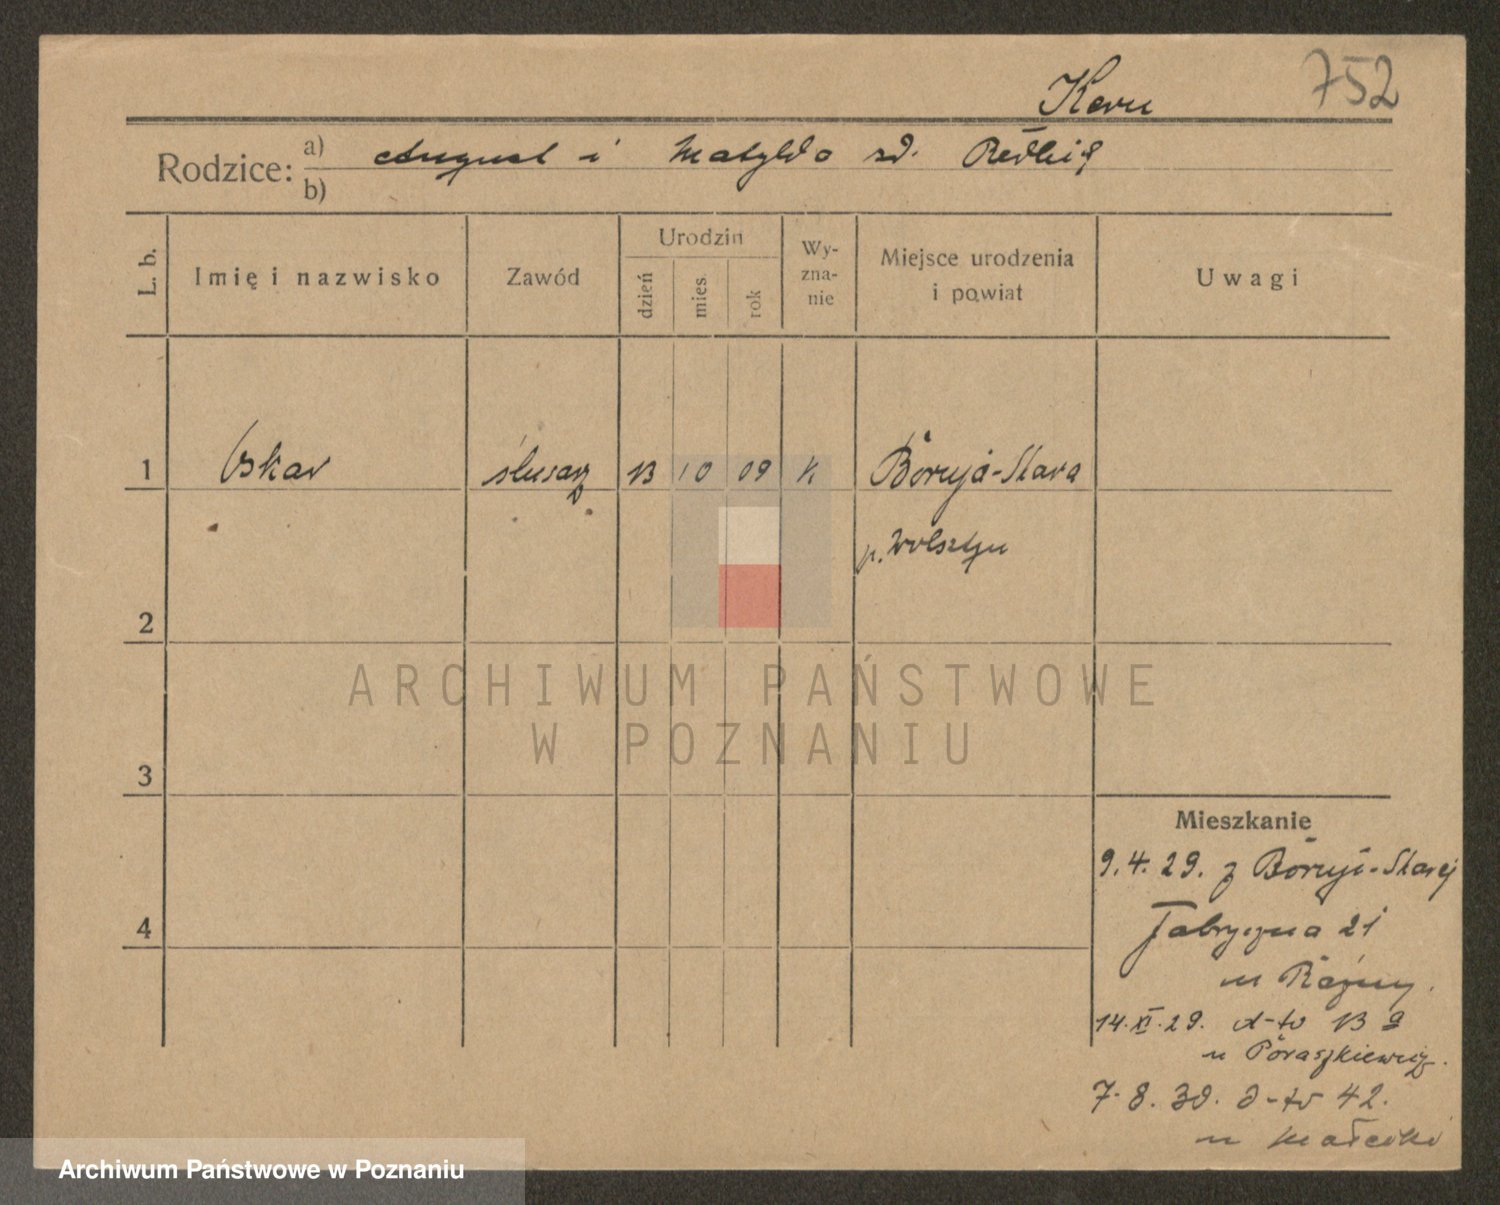 752
Kern
Rodzice: a) August i Matylda zd.
b)
L. b.
Imię i nazwisko
Zawód
Urodzin
dzień
mies.
rok
Wy-
zna-
nie
Miejsce urodzenia
i powiat
Uwagi
1 Oskar ślusarz 13 10 09 K Boruja-Stara
p. Wolsztyn
2
ARCHIWUM PAŃSTWOWE
W POZNANIU
3
Mieszkanie
9.4.29. z Boruji-Starej
4
Fabryczna 21
u
14.XI.29. d-to 13
u
7.8.30. d-to 42.
u
Archiwum Państwowe w Poznaniu